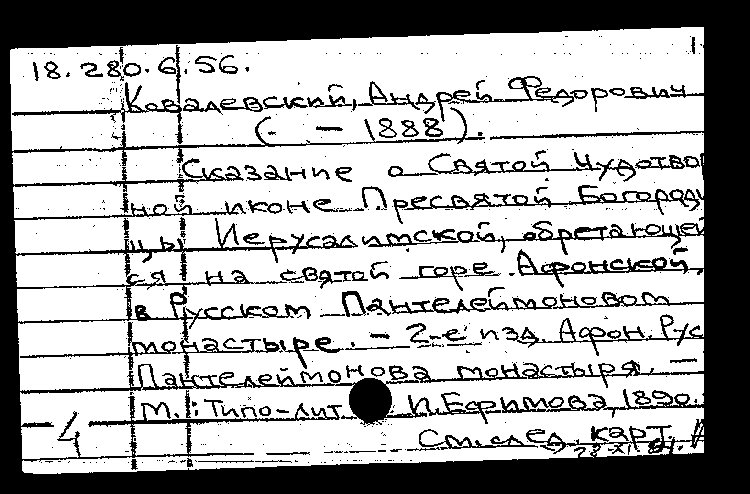 1.
18.280.6.56.
Ковалевский, Андрей Федорович
( - 1888).
Сказание о Святой Чудотвор
ной иконе Пресвятой Богороди
цы Иерусалимской, обретающей
ся на святой горе Афонской,
в Русском Пантелеймоновом
монастыре. - 2-е изд. Афон. Рус
Пантелеймонова монастыря. -
М.: Типо-лит И. Ефимова, 1890.
4
См. след. карт.
28-XI